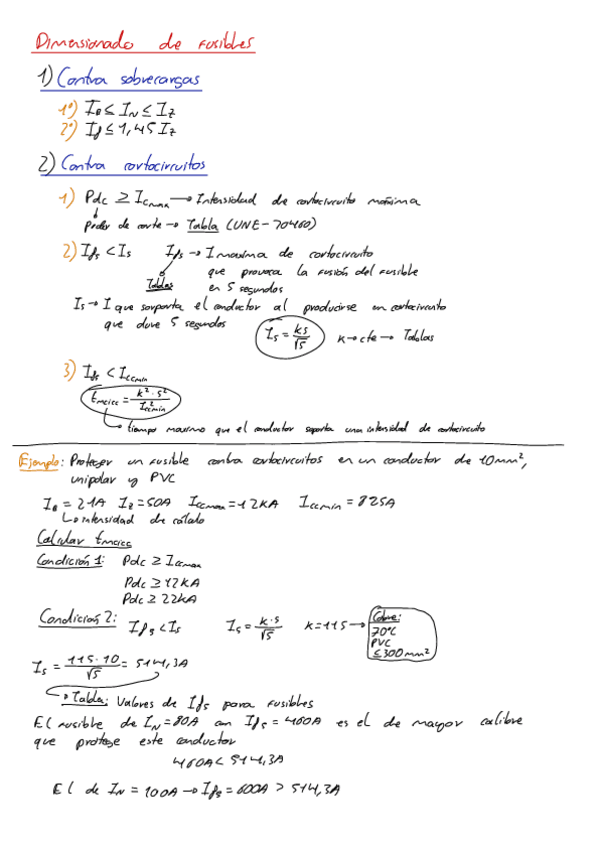 Dimensionado de fusibles
1) Contra sobrecargas
1º) I_B ≤ I_N ≤ I_Z
2º) I_f ≤ 1,45 I_Z
2) Contra cortocircuitos
1) Pdc ≥ I_ccmax → Intensidad de cortocircuito máxima
Poder de corte → Tabla (UNE-70460)
2) I_f5 < I_5 I_f5 → I maxima de cortocircuito
que provoca la fusión del fusible
Tablas en 5 segundos
I_5 → I que sorporta el conductor al producirse un cortocircuito
que dure 5 segundos
I_5 = ks/√5 k → cte → Tablas
3) I_f5 < I_ccmin
t_mcicc = k²·s²/I²_ccmin
tiempo maximo que el conductor soporta una intensidad de cortocircuito
Ejemplo: Proteger un fusible contra cortocircuitos en un conductor de 10mm²,
unipolar y PVC
I_B = 21A I_Z = 50A I_ccmax = 12KA I_ccmin = 825A
↳ intensidad de cálculo
Calcular t_mcicc
Condición 1: Pdc ≥ I_ccmax
Pdc ≥ 12KA
Pdc ≥ 22KA
Condición 2: I_f5 < I_5 I_5 = k·s/√5 k = 115 → Cobre:
70°C
PVC
≤ 300mm²
I_5 = 115·10/√5 = 514,3A
→ Tabla: Valores de I_f5 para fusibles
El fusible de I_N = 80A con I_f5 = 460A es el de mayor calibre
que protege este conductor
460A < 514,3A
El de I_N = 100A → I_f5 = 600A > 514,3A